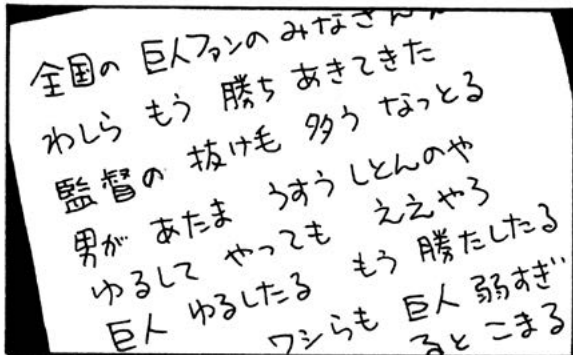 全国の 巨人ファンの みなさん
わしら もう 勝ち あきてきた
監督の 抜け毛 多う なっとる
男が あたま うすう しとんのや
ゆるして やっても ええやろ
巨人 ゆるしたる もう 勝たしたる
ワシらも 巨人 弱すぎ
ると こまる